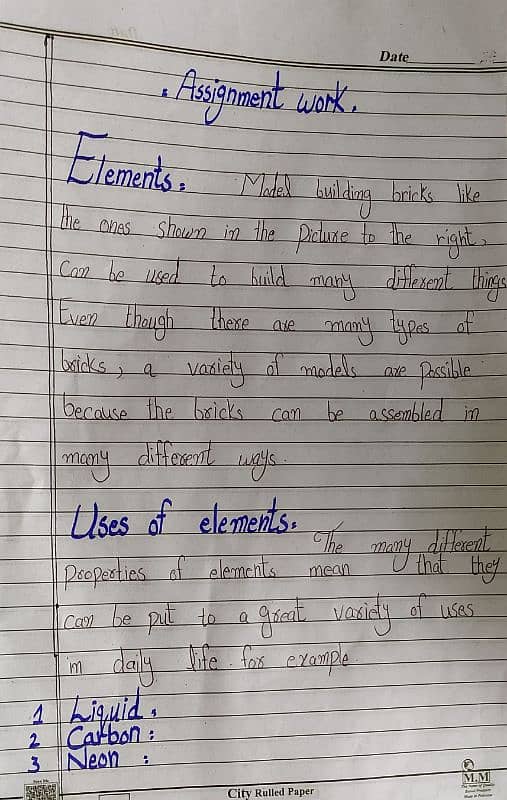 Date
. Assignment work.
Elements: Model building bricks like
the ones shown in the Picture to the right,
Can be used to build many different things
Even though there are many types of
bricks, a variety of models are possible
because the bricks can be assembled in
many different ways.
Uses of elements. The many different
Properties of elements mean that they
can be put to a great variety of uses
in daily life. for example.
1 Liquid :
2 Carbon :
3 Neon :
City Rulled Paper
M.M